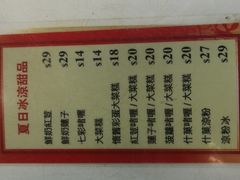 夏日冰涼甜品
鮮奶紅荳 $29
鮮奶蓮子 $29
七彩啫喱 $14
大菜糕 $14
懷舊彩蛋大菜糕 $18
紅荳啫喱/大菜糕 $20
蓮子啫喱/大菜糕 $20
菠蘿啫喱/大菜糕 $20
什菓啫喱/大菜糕 $20
什菓涼粉 $27
涼粉冰 $29